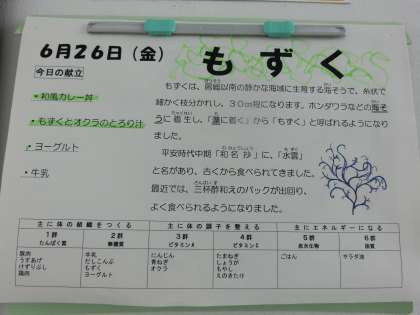 6月26日（金）
もずく
今日の献立
・和風カレー丼
・もずくとオクラのとろり汁
・ヨーグルト
・牛乳
もずくは、房総以南の静かな海域に生育する海そうで、糸状で
細かく枝分かれし、30cm程になります。ホンダワラなどの海そ
うに着生し、「藻に着く」から「もずく」と呼ばれるようになり
ました。
平安時代中期「和名抄」に、「水雲」
と名があり、古くから食べられてきました。
最近では、三杯酢和えのパックが出回り、
よく食べられるようになりました。
主に体の組織をつくる 主に体の調子を整える 主にエネルギーになる
1群 2群 3群 4群 5群 6群
たんぱく質 無機質 ビタミンA ビタミンC 炭水化物 脂質
豚肉 牛乳 にんじん たまねぎ ごはん サラダ油
うすあげ だしこんぶ 青ねぎ しょうが
けずりぶし もずく オクラ もやし
鶏肉 ヨーグルト えのきたけ